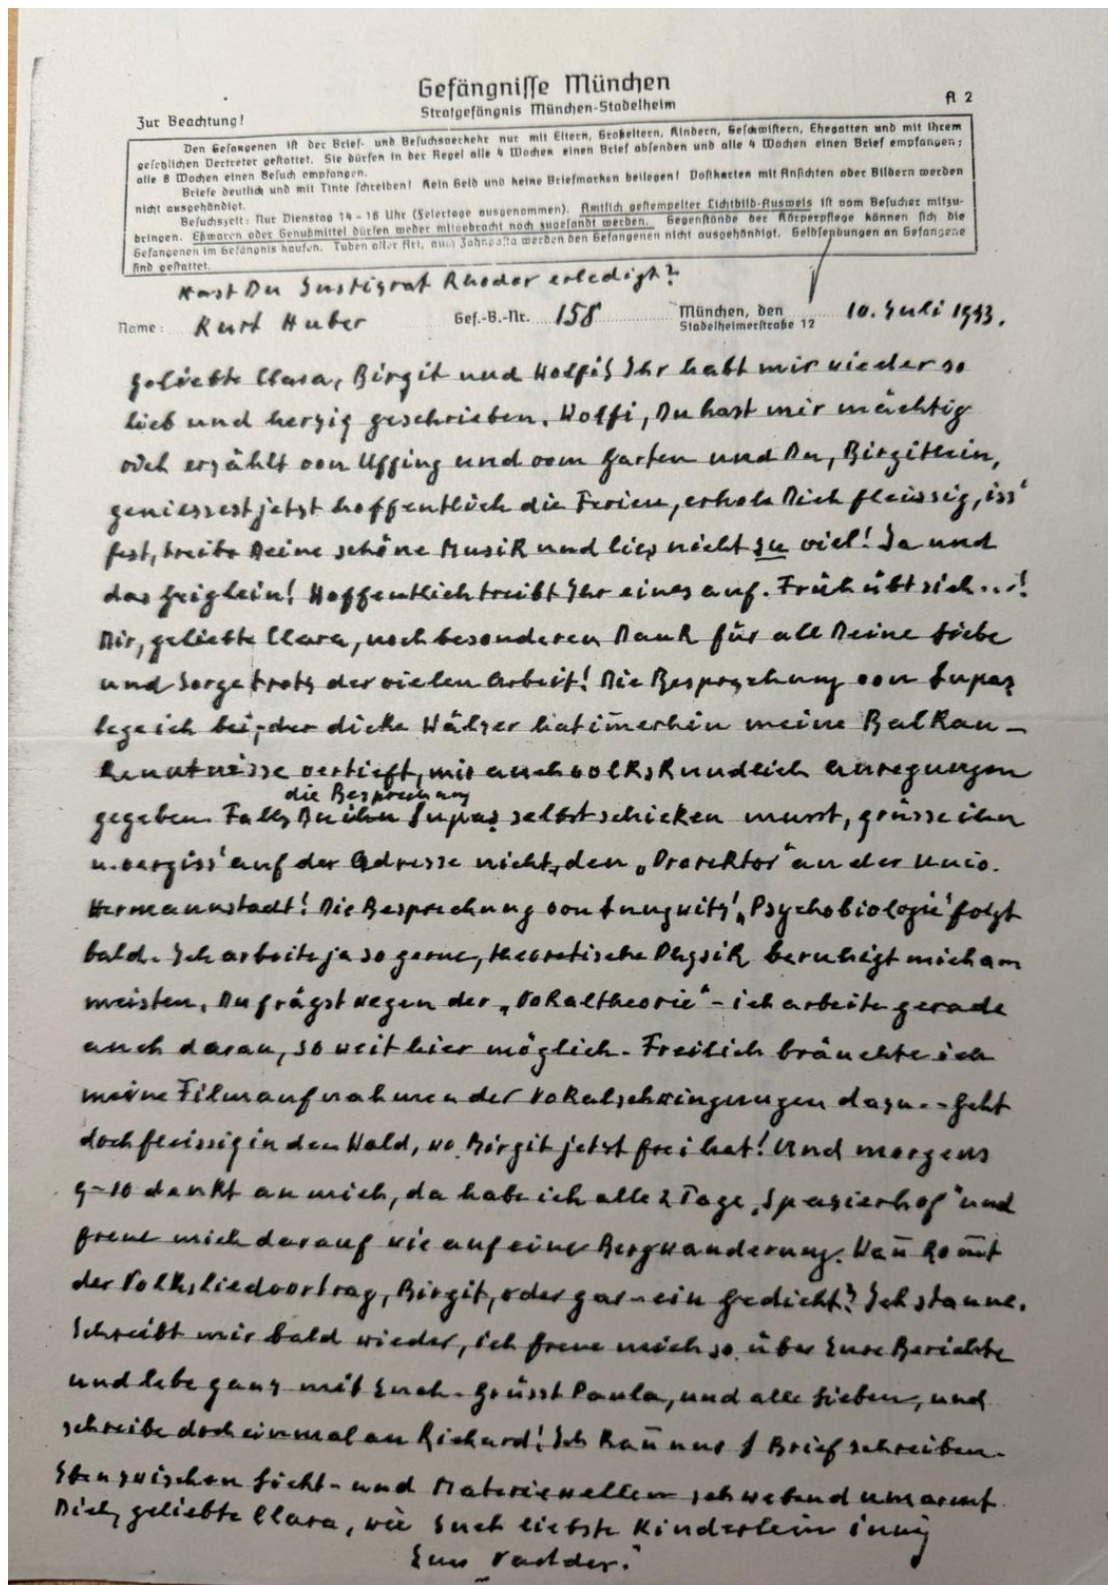 Gefängnisse München
Strafgefängnis München-Stadelheim
A 2
Zur Beachtung!
Den Gefangenen ist der Brief- und Besuchsverkehr nur mit Eltern, Großeltern, Kindern, Geschwistern, Ehegatten und mit ihrem
gesetzlichen Vertreter gestattet. Sie dürfen in der Regel alle 4 Wochen einen Brief absenden und alle 4 Wochen einen Brief empfangen;
alle 8 Wochen einen Besuch empfangen.
Briefe deutlich und mit Tinte schreiben! Kein Geld und keine Briefmarken beilegen! Postkarten mit Ansichten oder Bildern werden
nicht ausgehändigt.
Besuchszeit: Nur Dienstag 14-16 Uhr (Feiertage ausgenommen). Amtlich gestempelter Lichtbild-Ausweis ist vom Besucher mitzu-
bringen. Eßwaren oder Genußmittel dürfen weder mitgebracht noch zugesandt werden. Gegenstände der Körperpflege können sich die
Gefangenen im Gefängnis kaufen. Tuben aller Art, auch Zahnpasta werden den Gefangenen nicht ausgehändigt. Geldsendungen an Gefangene
sind gestattet.
Hast Du Justizrat Rhoder erledigt?
Name: Kurt Huber Gef.-B.-Nr. 158 München, den 10. Juli 1943.
Stadelheimerstraße 12
Geliebte Clara, Birgit und Wolfi! Ihr habt mir wieder so
lieb und herzig geschrieben. Wolfi, Du hast mir mächtig
erzählt von Uffing und vom Garten und Du, Birgitlein,
geniessest jetzt hoffentlich die Ferien, erhole Dich fleissig, iss'
fest, treibe Deine schöne Musik und lies nicht zu viel! Ja und
das Geiglein! Hoffentlich treibt Ihr eines auf. Früh übt sich...!
Dir, geliebte Clara, noch besonderen Dank für all Deine Liebe
und Sorge trotz der vielen Arbeit! Die Besprechung von Lupaș
lege ich bei; der dicke Wälzer hat im̄erhin meine Balkan-
kenntnisse vertieft, mir auch volkskundlich Anregungen
die Besprechung
gegeben. Falls Du Lupaș selbst schicken musst, grüsse ihn
u. vergiss' auf der Adresse nicht, den „Prorektor“ an der Univ.
Hermannstadt! Die Besprechung von Lungwitz' „Psychobiologie“ folgt
bald. Ich arbeite ja so gerne, theoretische Physik beruhigt mich am
meisten. Du frägst wegen der „Vokaltheorie“ - ich arbeite gerade
auch daran, so weit hier möglich. Freilich bräuchte ich
meine Filmaufnahmen der Vokalschwingungen dazu. - Geht
doch fleissig in den Wald, wo Birgit jetzt frei hat! Und morgens
9-10 denkt an mich, da habe ich alle 2 Tage „Spazierhof“ und
freue mich darauf wie auf eine Bergwanderung. Wan̄ kom̄t
der Volksliedvortrag, Birgit, oder gar - ein Gedicht? Ich staune.
Schreibt mir bald wieder, ich freue mich so über Eure Berichte
und lebe ganz mit Euch. Grüsst Paula, und alle Lieben, und
schreibe doch einmal an Richard! Ich kan̄ nur 1 Brief schreiben.
Eben zwischen Licht- und Materiewellen schwebend umarmt
Dich, geliebte Clara, wie Euch liebste Kinderlein innig
Euer „Vadder.“